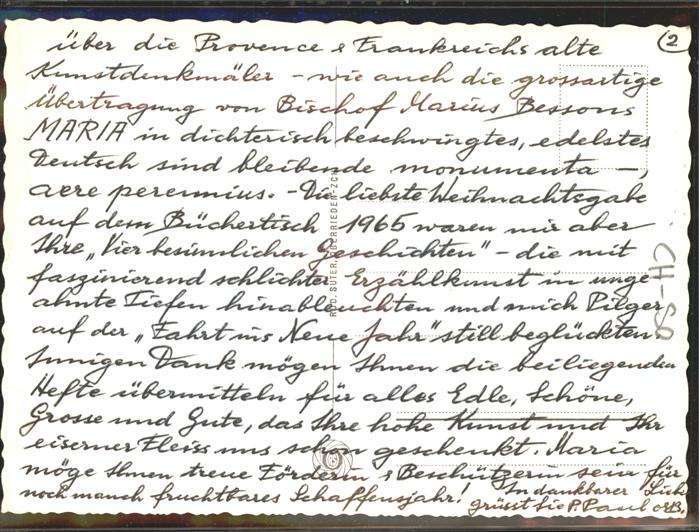 (2)
über die Provence & Frankreichs alte
Kunstdenkmäler - wie auch die grossartige
Übertragung von Bischof Marius Bessons
MARIA in dichterisch beschwingtes, edelstes
Deutsch sind bleibende monumenta -,
aere perennius. - Die liebste Weihnachtsgabe
auf dem Büchertisch 1965 waren mir aber
Ihre „Vier besinnlichen Geschichten" - die mit
faszinierend schlichter Erzählkunst in unge-
ahnte Tiefen hinableuchten und mich Pilger
auf der „Fahrt ins Neue Jahr" still beglückten.
Innigen Dank mögen Ihnen die beiliegenden
Hefte übermitteln für alles Edle, Schöne,
Grosse und Gute, das Ihre hohe Kunst und Ihr
eiserner Fleiss uns schon geschenkt. Maria
möge Ihnen treue Förderin & Beschützerin sein für
noch manch fruchtbares Schaffensjahr!
In dankbarer Lieb
grüsst Sie P. Paul OSB.
SUTER, OBERRIEDEN-ZCH
CH-SO